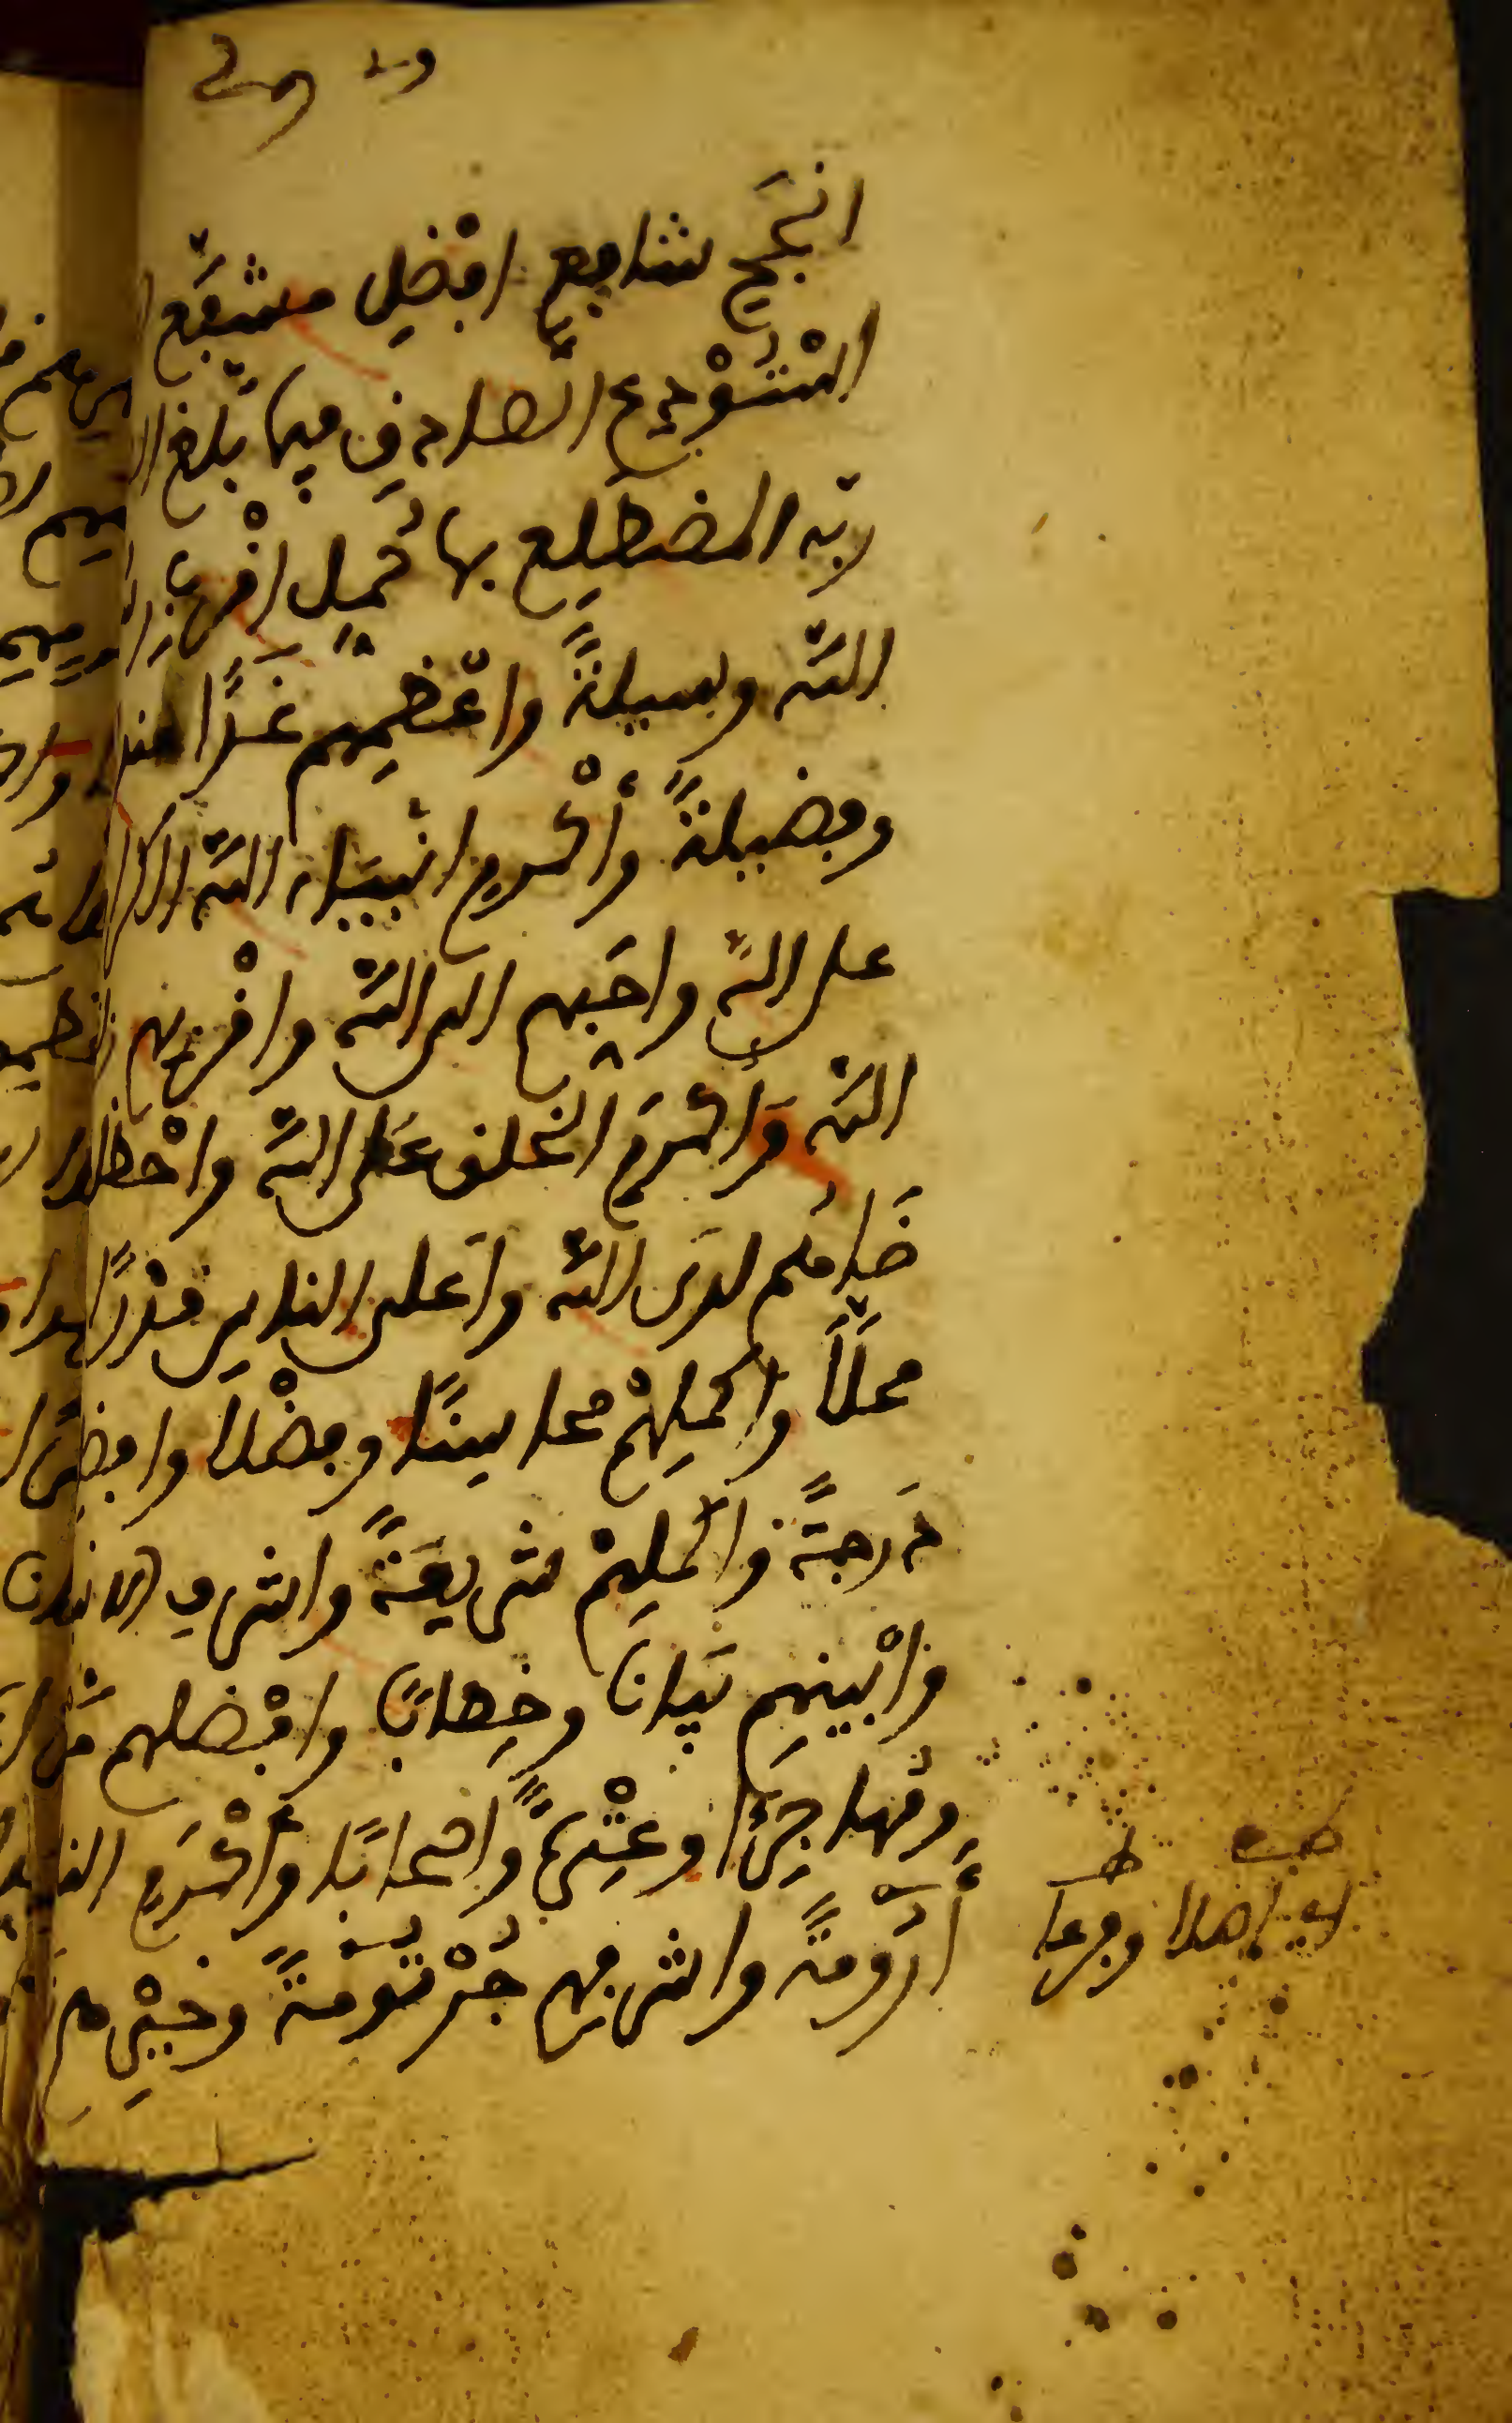 انجَحِ شافِعٍ افْضَلِ مشفَّعٍ
الْمُسْتَوْدَعِ الصادِقِ فيما بَلَّغ
ربّه المضطَلِع بما حُمِّلَ اقْرَبِ
اللَّه وسيلةً واعْظمِهم غَدًا
وفضيلةً وأَكْرمِ انبياءِ اللَّه الكرا
على اللَّه واحَبِّهم الى اللَّه واقْرَبِهم
اللَّه وَأَكْرَمِ الْخلق عَلى اللَّه واحْظا
ضَاهُم لدَى اللَّه واَعلى الناسِ قَدْرًا
محلًّا واكملِهْم محاسِنًا وفضْلا وافضل
دَرجةً واكملِهْم شريعَةً واشرفِ الانبيا
وابْيَنِهِم بَيانا وخِطابًا وافْضلهم
ومُهاجَرًا وعِتْرةً واصحابًا وأَكْرَمِ النا
أَرُومةً واشرفِهم جُرْثُومةً وخَيْرِهم
اي اصلا وفرعا